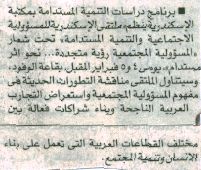 ■ برنامج دراسات التنمية المستدامة بمكتبة
الإسكندرية ينظم ملتقى الإسكندرية للمسؤولية
الاجتماعية والتنمية المستدامة، تحت شعار
«المسؤولية المجتمعية رؤية متجددة... نحو أثر
مستدام»، يومى ٤ و٥ فبراير المقبل، بقاعة الوفود،
وسيتناول الملتقى مناقشة التطورات الحديثة فى
مفهوم المسؤولية المجتمعية واستعراض التجارب
العربية الناجحة وبناء شراكات فعالة بين
مختلف القطاعات العربية التى تعمل على بناء
الإنسان وتنمية المجتمع.